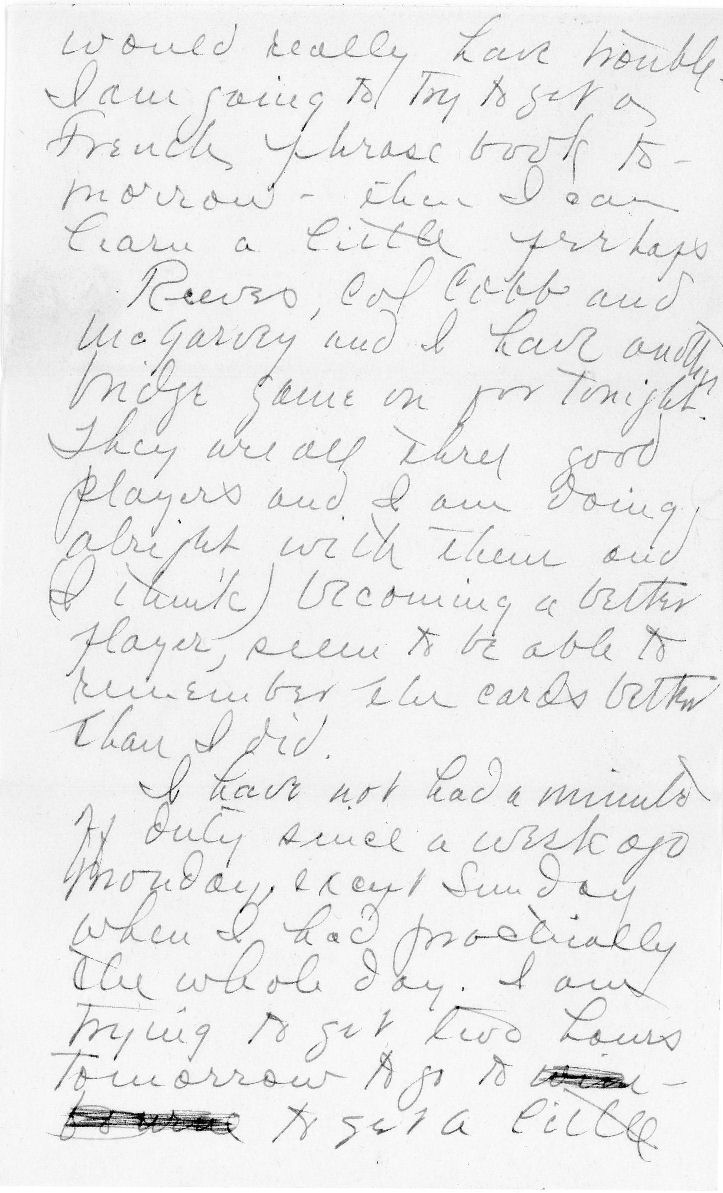 would really have trouble.
I am going to try to get a
French phrase book to-
morrow - then I can
learn a little perhaps
Reeves, Col Cobb and
McGarvey and I have another
bridge game on for tonight.
They are all three good
players and I am doing
alright with them and
(I think) becoming a better
player, seem to be able to
remember the cards better
than I did.
I have not had a minute
off duty since a week ago
Monday, except Sunday
when I had practically
the whole day. I am
trying to get two hours
tomorrow to go to
to get a little